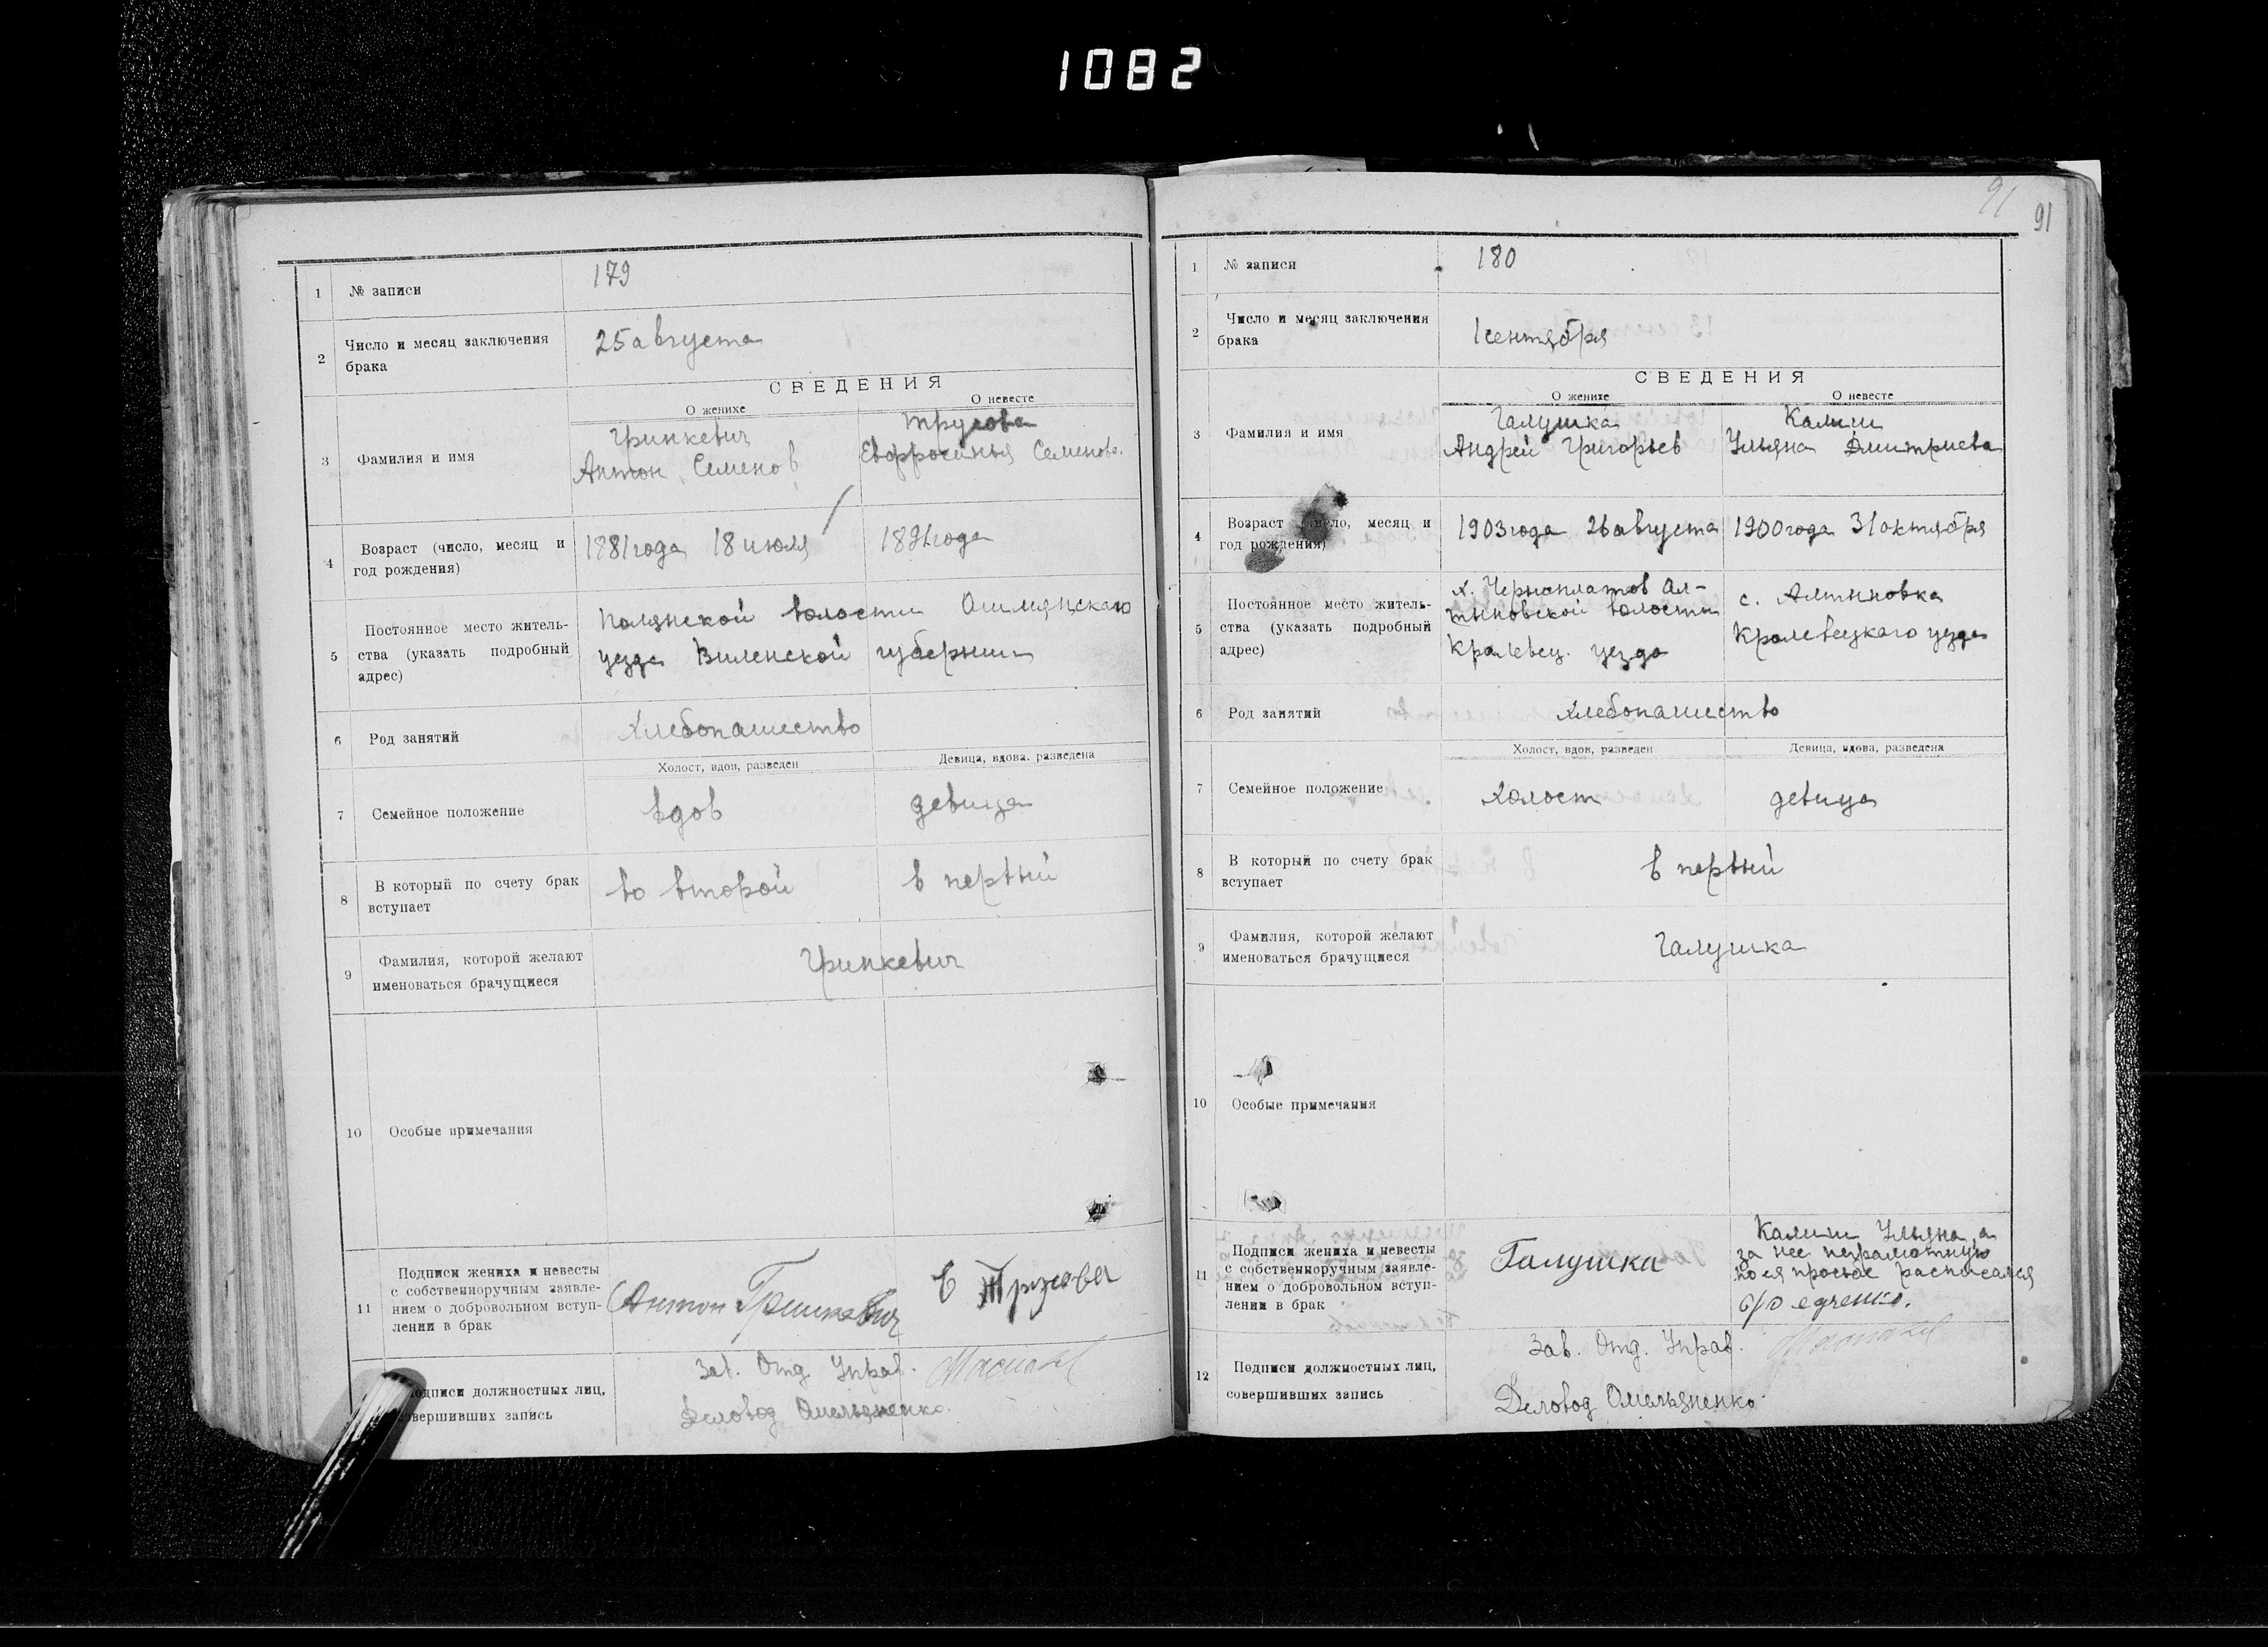 1082
1 № записи 179
2 Число и месяц заключения
брака
25 августа
СВЕДЕНИЯ
О женихе О невесте
3 Фамилия и имя
Гринкевич
Антон Семенов
Трусова
Евфросинья Семенов.
4 Возраст (число, месяц и
год рождения)
1881 года 18 июля 1891 года
5 Постоянное место житель-
ства (указать подробный
адрес)
Полянской волости Ошмянскаго
уезда Виленской губернии
6 Род занятий Хлебопашество
Холост, вдов, разведен Девица, вдова, разведена
7 Семейное положение вдов девица
8 В который по счету брак
вступает
во второй в первый
9 Фамилия, которой желают
именоваться брачущиеся
Гринкевич
10 Особые примечания
11 Подписи жениха и невесты
с собственноручным заявле-
нием о добровольном вступ-
лении в брак
Антон Гринкевич Е Трусова
Подписи должностных лиц,
совершивших запись
Зав. Отд. Управ.
Деловод Омельяненко.
91 91
1 № записи 180
2 Число и месяц заключения
брака
1 сентября
СВЕДЕНИЯ
О женихе О невесте
3 Фамилия и имя
Галушка
Андрей Григорьев
Калиш
Ульяна Дмитриева
4 Возраст (число, месяц и
год рождения)
1903 года 26 августа 1900 года 31 октября
5 Постоянное место житель-
ства (указать подробный
адрес)
х. Черноплатов Ал-
тыновской волости
Кролевец. уезда
с. Алтыновка
Кролевецкаго уезда
6 Род занятий Хлебопашество
Холост, вдов, разведен Девица, вдова, разведена
7 Семейное положение Холост девица
8 В который по счету брак
вступает
в первый
9 Фамилия, которой желают
именоваться брачущиеся
Галушка
10 Особые примечания
11 Подписи жениха и невесты
с собственноручным заявле-
нием о добровольном вступ-
лении в брак
Галушка
Калиш Ульяна, а
за нее неграмотную
по ея просьбе расписался
12 Подписи должностных лиц,
совершивших запись
Зав. Отд. Управ.
Деловод Омельяненко